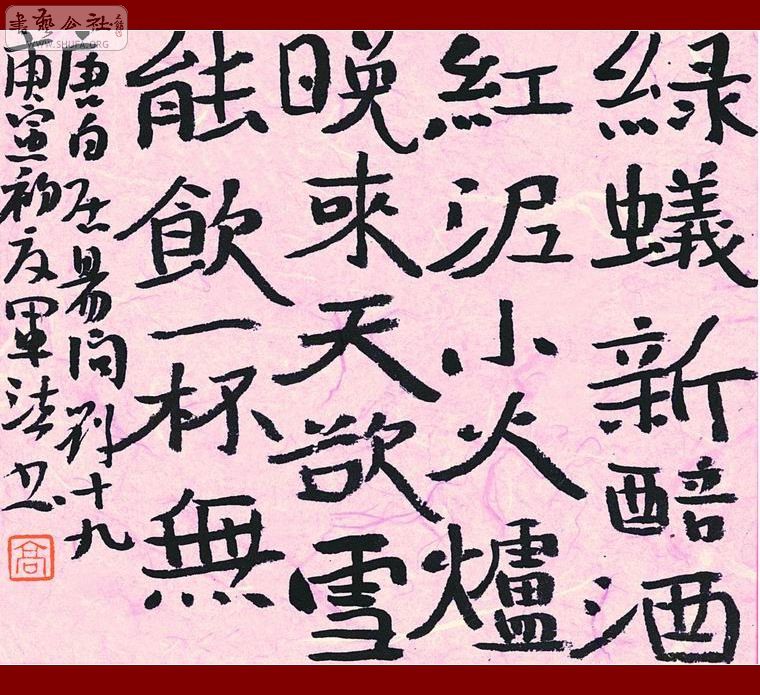 書藝公社
WWW.SHUFA.ORG
綠蟻新醅酒
紅泥小火爐
晚來天欲雪
能飲一杯無
唐白居易問劉十九
庚寅初夏軍法書
高